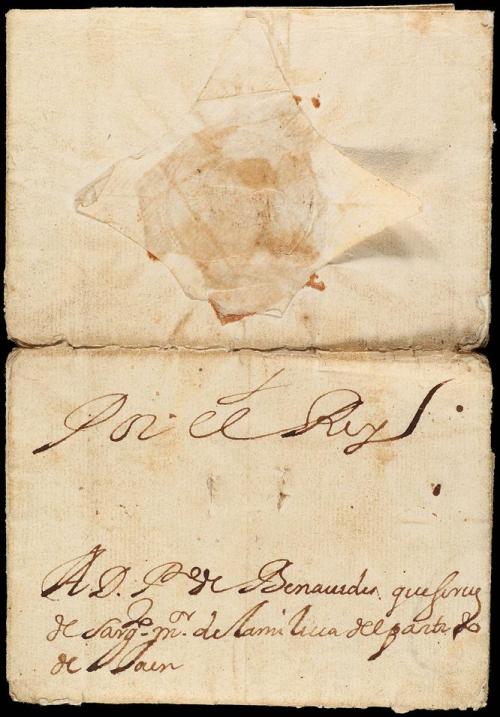 Por el Rey
A D. Po de Benauides que sirue
de Sargto mor de la miliçia del partido
de Jaen